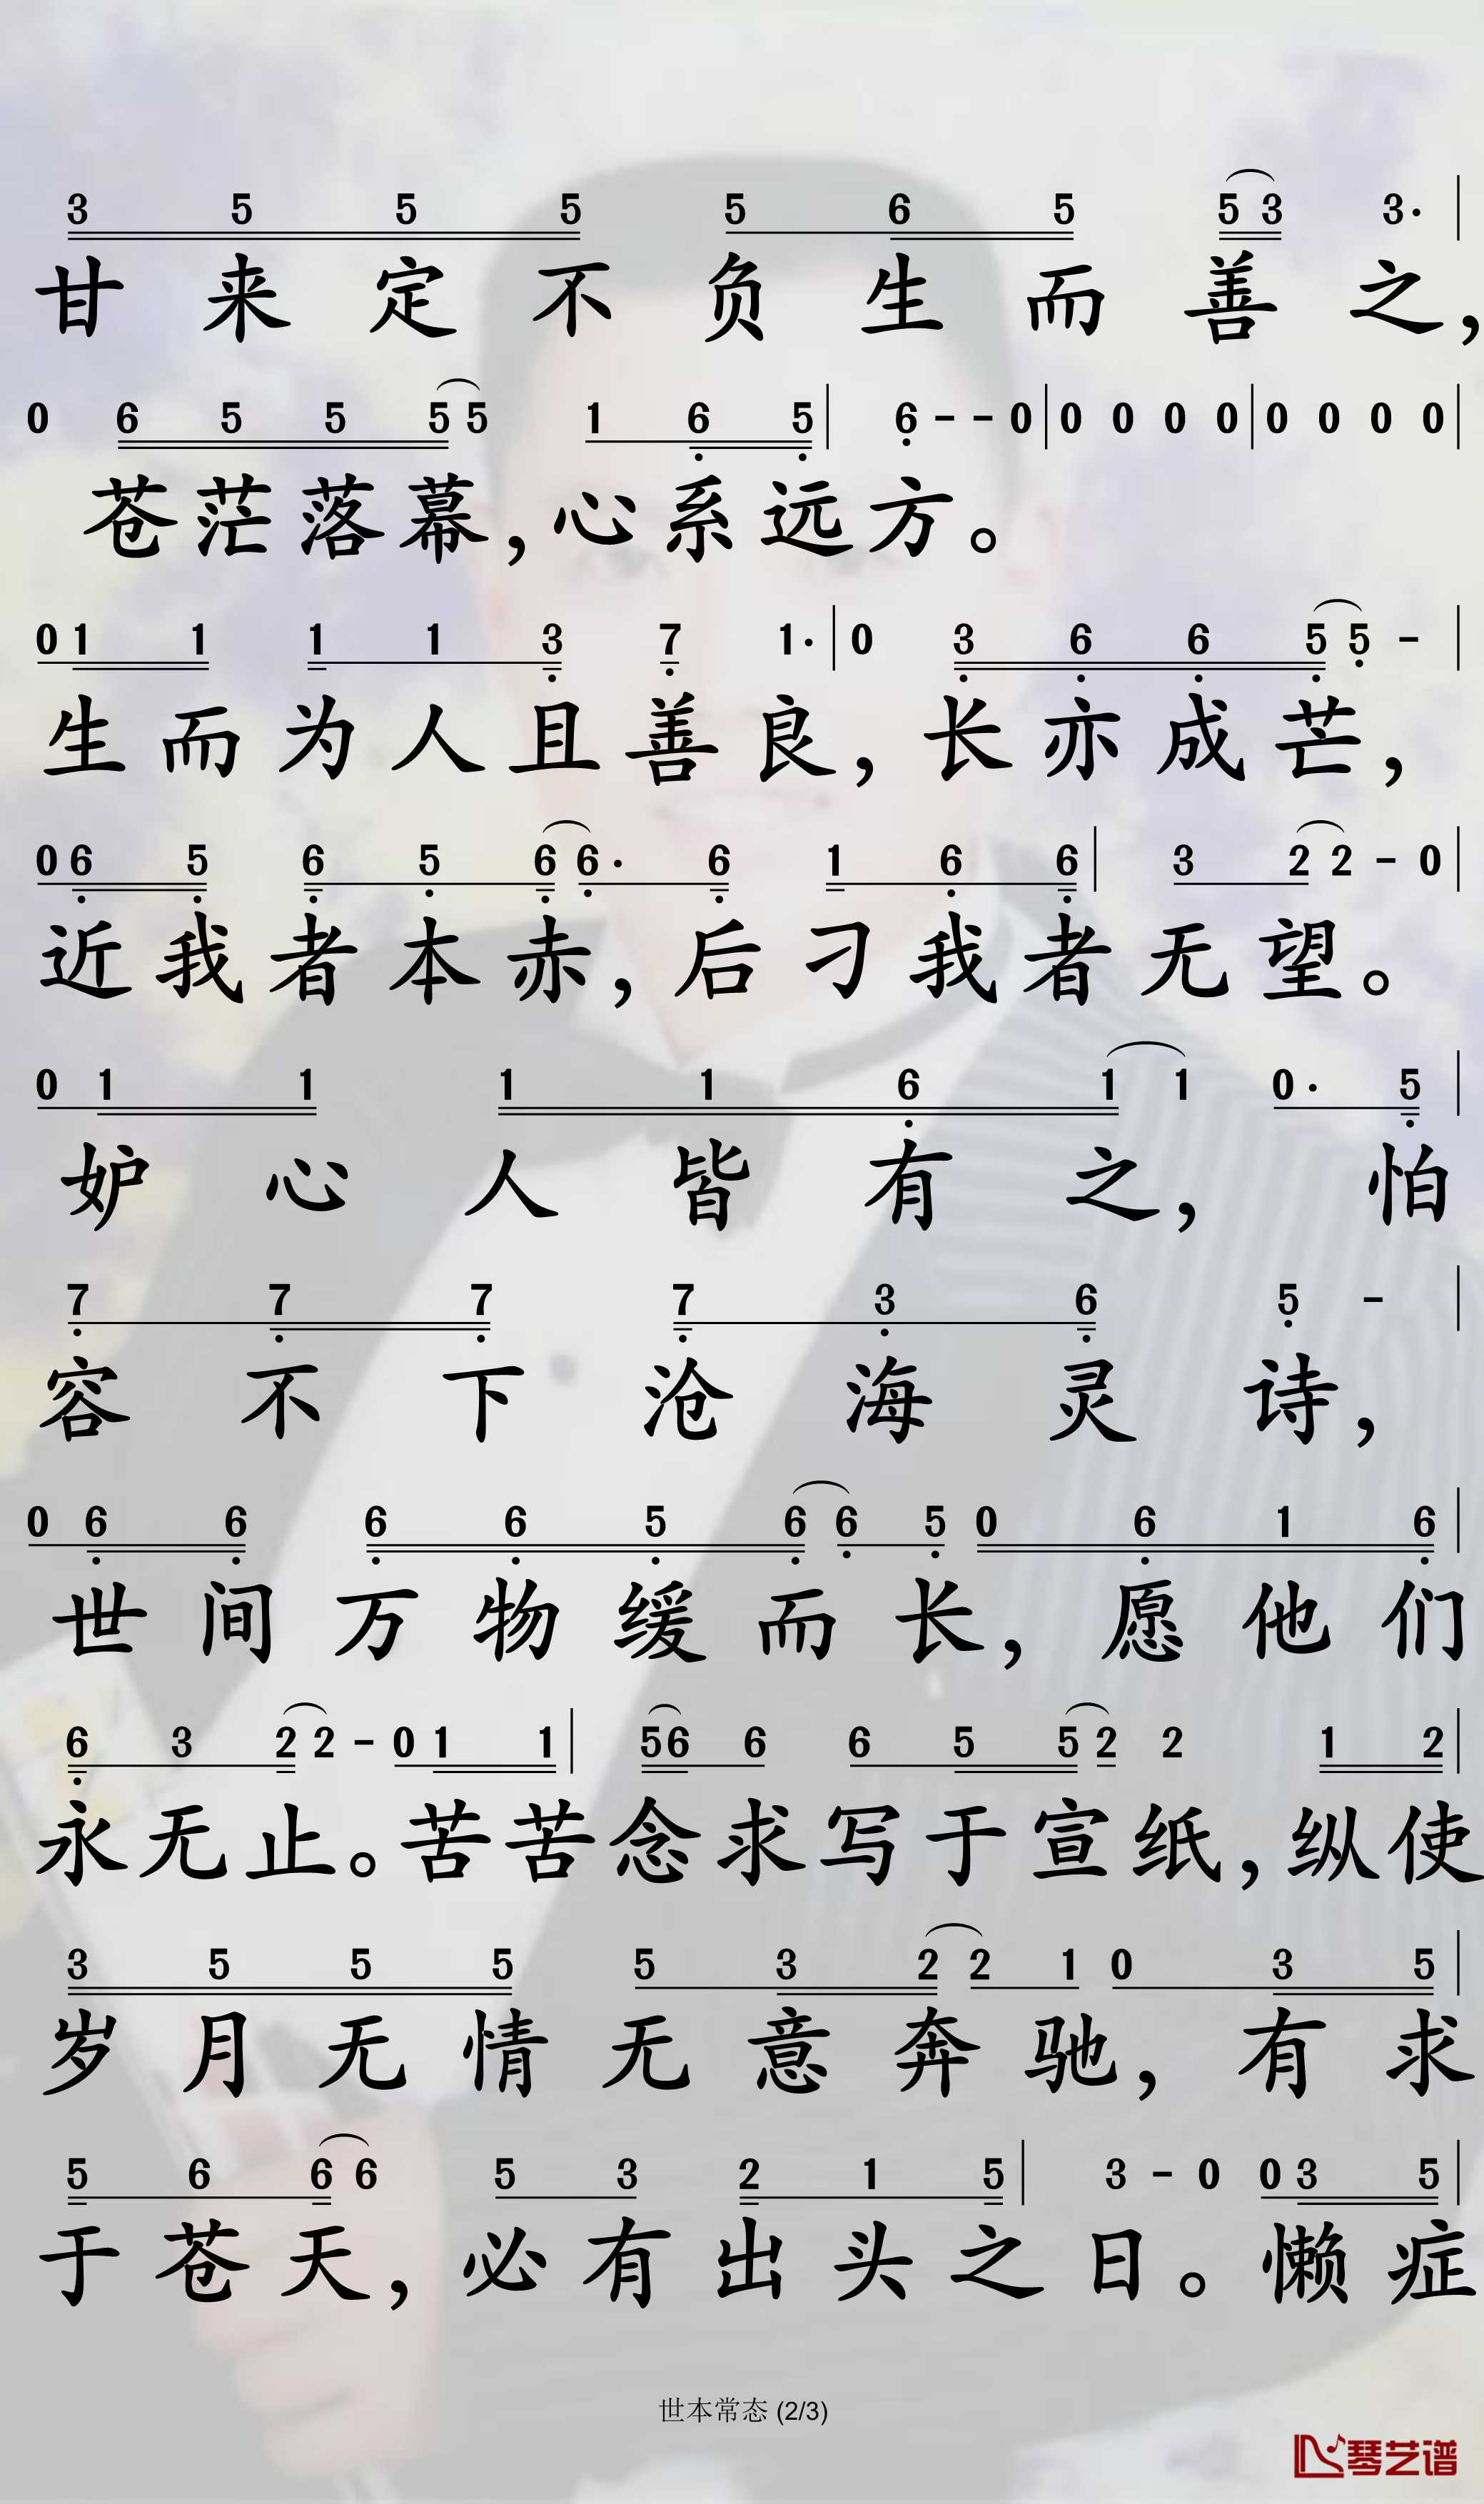 3 5 5 5 5 6 5 5 3 3· |
甘来定不负生而善之，
0 6 5 5 5 5 1 6 5 | 6 - - 0 | 0 0 0 0 | 0 0 0 0 |
苍茫落幕，心系远方。
0 1 1 1 1 3 7 1· | 0 3 6 6 5 5 - |
生而为人且善良，长亦成芒，
0 6 5 6 5 6 6· 6 1 6 6 | 3 2 2 - 0 |
近我者本赤，后刁我者无望。
0 1 1 1 1 6 1 1 0· 5 |
妒心人皆有之，怕
7 7 7 7 3 6 5 - |
容不下沧海灵诗，
0 6 6 6 6 5 6 6 5 0 6 1 6 |
世间万物缓而长，愿他们
6 3 2 2 - 0 1 1 | 5 6 6 6 5 5 2 2 1 2 |
永无止。苦苦念求写于宣纸，纵使
3 5 5 5 5 3 2 2 1 0 3 5 |
岁月无情无意奔驰，有求
5 6 6 6 5 3 2 1 5 | 3 - 0 0 3 5 |
于苍天，必有出头之日。懒症
世本常态 (2/3)
琴艺谱